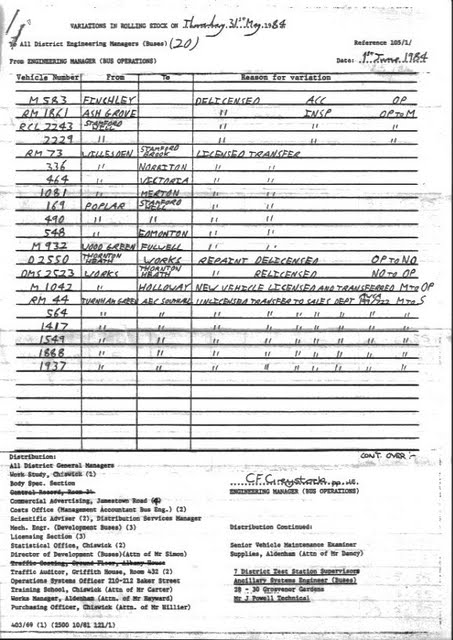 VARIATIONS IN ROLLING STOCK ON Thursday, 31st May, 1984
To All District Engineering Managers (Buses) (20) Reference 105/1/
From ENGINEERING MANAGER (BUS OPERATIONS) Date: 1st June 1984
Vehicle Number From To Reason for variation
M 583 FINCHLEY DELICENSED ACC OP
RM 1861 ASH GROVE " INSP OP TO M
RCL 2243 STAMFORD HILL " " "
2229 " " " "
RM 73 WILLESDEN STAMFORD BROOK LICENSED TRANSFER
336 " NORBITON " "
464 " VICTORIA " "
1081 " MERTON " "
169 POPLAR STAMFORD HILL " "
490 " " " "
548 " EDMONTON " "
M 932 WOOD GREEN FULWELL " "
D 2550 THORNTON HEATH WORKS REPAINT DELICENSED OP TO NO
DMS 2523 WORKS THORNTON HEATH " RELICENSED NO TO OP
M 1042 " HOLLOWAY NEW VEHICLE LICENSED AND TRANSFERRED M TO OP
RM 44 TURNHAM GREEN AEC SOUTHALL UNLICENSED TRANSFER TO SALES DEPT M TO S
564 " " " " " " " " "
1417 " " " " " " " " "
1549 " " " " " " " " "
1888 " " " " " " " " "
1937 " " " " " " " " "
CONT. OVER :-
Distribution:
All District General Managers
Work Study, Chiswick (1)
Body Spec. Section
Central Record, Room 24
Commercial Advertising, Jamestown Road
Costs Office (Management Accountant Bus Eng.) (2)
Scientific Adviser (2), Distribution Services Manager
Mech. Engr. (Development Buses) (3)
Licensing Section (3)
Statistical Office, Chiswick (2)
Director of Development (Buses)(Attn of Mr Simon)
Traffic Costing, Ground Floor, Albany House
Traffic Auditor, Griffith House, Room 432 (2)
Operations Systems Officer 210-212 Baker Street
Training School, Chiswick (Attn of Mr Carter)
Works Manager, Aldenham (Attn. of Mr Hayward)
Purchasing Officer, Chiswick (Attn of Mr Hillier)
403/69 (1) (2500 10/81 121/1)
C.F. Greystock
ENGINEERING MANAGER (BUS OPERATIONS)
Distribution Continued:
Senior Vehicle Maintenance Examiner
Supplies, Aldenham (Attn of Mr Dancy)
7 District Test Station Supervisors
Ancillary Systems Engineer (Buses)
28 - 30 Grosvenor Gardens
Mr J Powell Technical